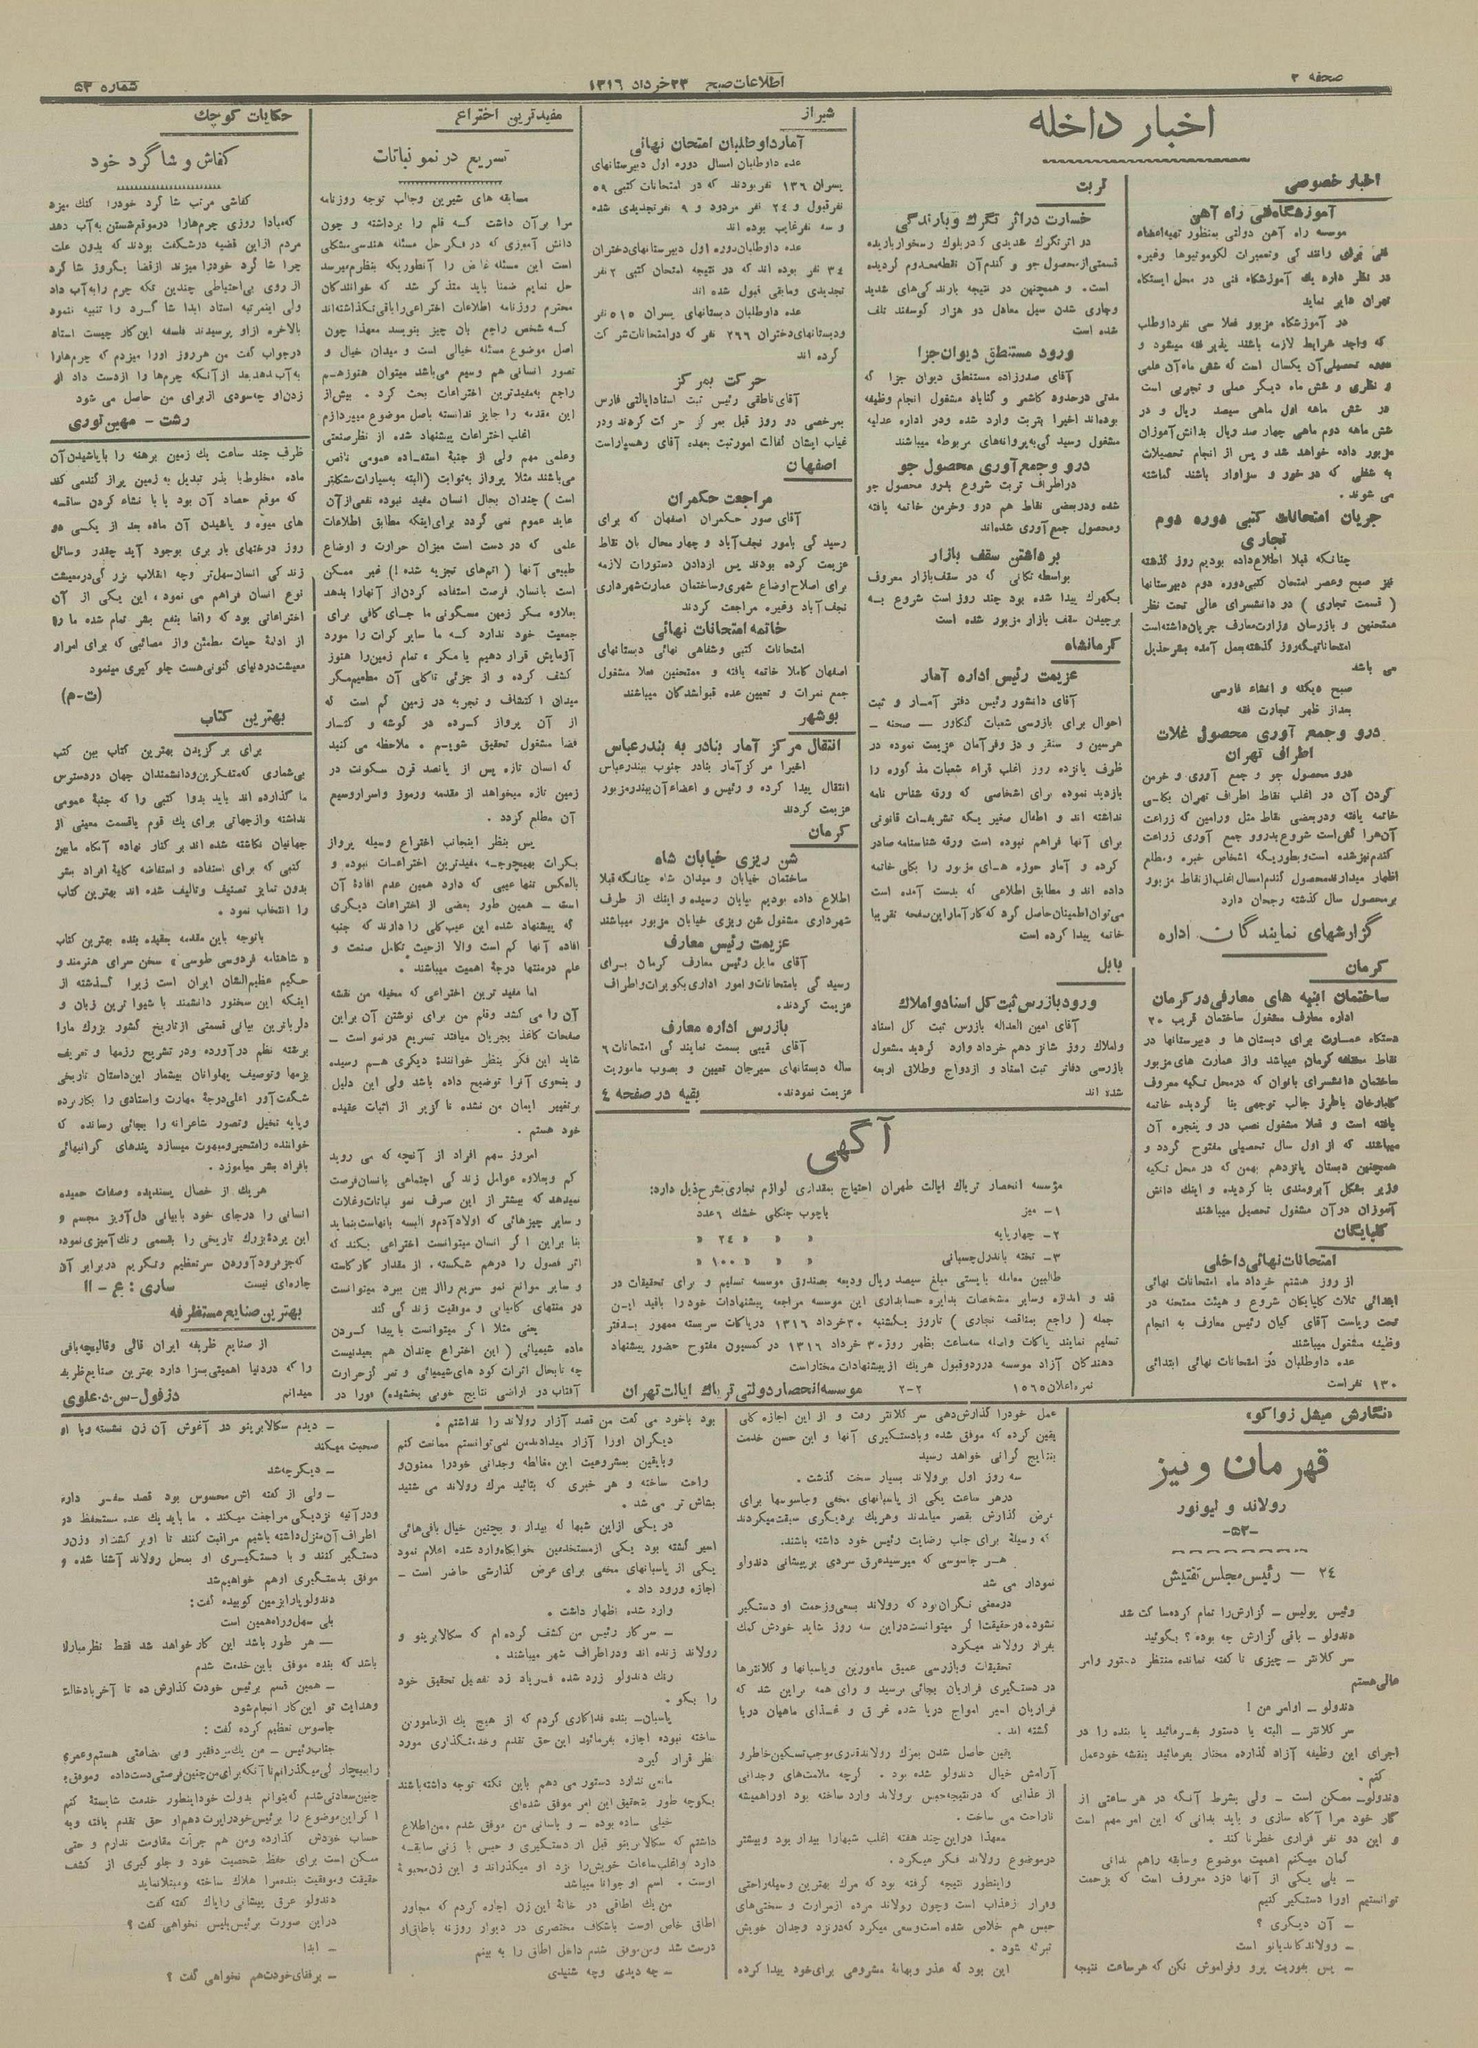 صحفه ۲
اطلاعات صبح ۲۳ خرداد ۱۳۱۶
شماره ۵۳
اخبار داخله
اخبار خصوصی
آموزشگاه فنی راه آهن
موسسه راه آهن دولتی بمنظور تهیه اعضاء
فنی برای رانندگی وتعمیرات لکوموتیوها وغیره
در نظر دارد یك آموزشگاه فنی در محل ایستگاه
تهران دایر نماید
در آموزشگاه مزبور فعلا سی نفرداوطلب
که واجد شرایط لازمه باشند پذیرفته میشود و
دوره تحصیلی آن یکسال است که شش ماه آن علمی
و نظری و شش ماه دیگر عملی و تجربی است
در شش ماهه اول ماهی سیصد ریال و در
شش ماهه دوم ماهی چهار صد ریال بدانش آموزان
مزبور داده خواهد شد و پس از انجام تحصیلات
به شغلی که در خور و سزاوار باشند گماشته
می شوند .
جریان امتحانات کتبی دوره دوم
تجاری
چنانکه قبلا اطلاع داده بودیم روز گذشته
نیز صبح وعصر امتحان کتبی دوره دوم دبیرستانها
( قسمت تجاری ) در دانشسرای عالی تحت نظر
ممتحنین و بازرسان وزارت معارف جریان داشته است
امتحاناتیکه روز گذشته بعمل آمده بشرح ذیل
می باشد
صبح دیکته و انشاء فارسی
بعداز ظهر تجارت فقه
درو وجمع آوری محصول غلات
اطراف تهران
درو محصول جو و جمع آوری و خرمن
کردن آن در اغلب نقاط اطراف تهران بکلی
خاتمه یافته ودربعضی نقاط مثل ورامین که زراعت
آن هراکش است شروع بدرو و جمع آوری زراعت
گندم نیز شده است وبطوریکه اشخاص خبره ومطلع
اظهار میدارند محصول گندم امسال اغلب از نقاط مزبور
بر محصول سال گذشته رجحان دارد
گزارشهای نمایندگان اداره
کرمان
ساختمان ابنیه های معارفی در کرمان
اداره معارف مشغول ساختمان قریب ۲۰
دستگاه عمارت برای دبستان ها و دبیرستانها در
نقاط مختلفه کرمان میباشد واز عمارت های مزبور
ساختمان دانشسرای بانوان که درمحل تکیه معروف
گلبازخان باطرز جالب توجهی بنا گردیده خاتمه
یافته است و فعلا مشغول نصب در و پنجره آن
میباشند که از اول سال تحصیلی مفتوح گردد و
همچنین دبستان پانزدهم بهمن که در محل تکیه
وزیر بشکل آبرومندی بنا گردیده و اینك دانش
آموزان درآن مشغول تحصیل میباشند
گلپایگان
امتحانات نهائی داخلی
از روز هشتم خرداد ماه امتحانات نهائی
ابتدائی ثلاث گلپایگان شروع و هیئت ممتحنه در
تحت ریاست آقای کیان رئیس معارف به انجام
وظیفه مشغول میباشند
عده داوطلبان در امتحانات نهائی ابتدائی
۱۳۰ نفر است
تربت
خسارت دراثر تگرك وبارندگی
در اثر تگرك شدیدی که در بلوك رسخوار باریده
قسمتی از محصول جو و گندم آن نقطه معدوم گردیده
است . و همچنین در نتیجه بارندگی های شدید
وجاری شدن سیل معادل دو هزار گوسفند تلف
شده است
ورود مستنطق دیوان جزا
آقای صدرزاده مستنطق دیوان جزا که
مدتی در حدود کاشمر و گناباد مشغول انجام وظیفه
بوده اند اخیرا بتربت وارد شده ودر اداره عدلیه
مشغول رسیدگی به پروانه های مربوطه میباشند
درو وجمع آوری محصول جو
در اطراف تربت شروع بدرو محصول جو
شده ودربعضی نقاط هم درو وخرمن خاتمه یافته
ومحصول جمع آوری شده اند
برداشتن سقف بازار
بواسطه تکانی که در سقف بازار معروف
بکهرك پیدا شده بود چند روز است شروع به
برچیدن سقف بازار مزبور شده است
کرمانشاه
عزیمت رئیس اداره آمار
آقای دانشور رئیس دفتر آمار و ثبت
احوال برای بازرسی شعبات کنگاور — صحنه —
هرسین و سنقر و دز وفرآمان عزیمت نموده در
ظرف پانزده روز اغلب قراء شعبات مذکوره را
بازدید نموده برای اشخاصی که ورقه شناس نامه
نداشته اند و اطفال صغیر یکه تشریفات قانونی
برای آنها فراهم نبوده است ورقه شناسنامه صادر
کرده و آمار حوزه های مزبور را بکلی خاتمه
داده اند و مطابق اطلاعی که بدست آمده است
می توان اطمینان حاصل کرد که کار آمار این صفحه تقریبا
خاتمه پیدا کرده است
بابل
ورود بازرس ثبت کل اسناد و املاك
آقای امین العداله بازرس ثبت کل اسناد
واملاك روز شانزدهم خرداد وارد گردید مشغول
بازرسی دفاتر ثبت اسناد و ازدواج وطلاق اربعه
شده اند
شیراز
آمار داوطلبان امتحان نهائی
عده داوطلبان امسال دوره اول دبیرستانهای
پسران ۱۳۶ نفر بودند که در امتحانات کتبی ۵۹
نفر قبول و ۲۴ نفر مردود و ۹ نفر تجدیدی شده
و سه نفر غایب بوده اند
عده داوطلبان دوره اول دبیرستانهای دختران
۳۴ نفر بوده اند که در نتیجه امتحان کتبی ۲ نفر
تجدیدی ومابقی قبول شده اند
عده داوطلبان دبستانهای پسران ۵۱۵ نفر
ودبستانهای دختران ۲۶۶ نفر که در امتحانات شرکت
کرده اند
حرکت بمرکز
آقای ناطقی رئیس ثبت اسناد ایالتی فارس
بمرخصی دو روز قبل بمرکز حرکت کردند ودر
غیاب ایشان کفالت امور ثبت بعهده آقای رهسپار است
اصفهان
مراجعت حکمران
آقای سور حکمران اصفهان که برای
رسیدگی بامور نجف آباد و چهار محال بان نقاط
عزیمت کرده بودند پس ازدادن دستورات لازمه
برای اصلاح اوضاع شهری وساختمان عمارت شهرداری
نجف آباد وغیره مراجعت کردند
خاتمه امتحانات نهائی
امتحانات کتبی وشفاهی نهائی دبستانهای
اصفهان کاملا خاتمه یافته و ممتحنین فعلا مشغول
جمع نمرات و تعیین عده قبولشدگان میباشند
بوشهر
انتقال مرکز آمار بنادر به بندرعباس
اخیرا مرکز آمار بنادر جنوب ببندرعباس
انتقال پیدا کرده و رئیس و اعضاء آن ببندر مزبور
عزیمت کردند
کرمان
شن ریزی خیابان شاه
ساختمان خیابان و میدان شاه چنانکه قبلا
اطلاع داده بودیم بپایان رسیده و اینك از طرف
شهرداری مشغول شن ریزی خیابان مزبور میباشند
عزیمت رئیس معارف
آقای مایل رئیس معارف کرمان برای
رسیدگی بامتحانات وامور اداری بکوبرات واطراف
عزیمت کردند.
بازرس اداره معارف
آقای قیبی بسمت نمایندگی امتحانات ۶
ساله دبستانهای سیرجان تعیین و بصوب ماموریت
عزیمت نمودند.
بقیه در صفحه ٤
آگهی
مؤسسه انحصار تریاك ایالت طهران احتیاج بمقداری لوازم نجاری بشرح ذیل دارد:
۱- میز باچوب جنگلی خشك ۶ عدد
۲- چهارپایه » » » ۲۴ »
۳- تخته باندرل چسبانی » » ۱۰۰ »
طالبین معامله بایستی مبلغ سیصد ریال ودیعه بصندوق موسسه تسلیم و برای تحقیقات در
قد و اندازه وسایر مشخصات بدایره حسابداری این موسسه مراجعه پیشنهادات خود را باقید این
جمله ( راجع بمناقصه نجاری ) تا روز یکشنبه ۳۰ خرداد ۱۳۱۶ درپاکات سربسته ممهور بدفتر
تسلیم نمایند پاکات واصله سه ساعت بظهر روز ۳۰ خرداد ۱۳۱۶ در کمسیون مفتوح حضور پیشنهاد
دهندگان آزاد موسسه دررد وقبول هریك از پیشنهادات مختار است
نمره اعلان ۱۵۶۵ ۲-۲ موسسه انحصار دولتی تریاك ایالت تهران
مفید ترین اختراع
تسریع در نمو نباتات
مسابقه های شیرین وجالب توجه روزنامه
مرا برآن داشت که قلم را برداشته و چون
دانش آموزی که در فکر حل مسئله هندسی مشکلی
است این مسئله غامض را آنطوریکه بنظرم میرسد
حل نمایم ضمنا باید متذکر شد که خوانندگان
محترم روزنامه اطلاعات اختراعی را باقی نگذاشته اند
که شخص راجع بان چیز بنویسد معهذا چون
اصل موضوع مسئله خیالی است و میدان خیال و
تصور انسانی هم وسیع می باشد میتوان هنوز هم
راجع به مفیدترین اختراعات بحث کرد . بیش از
این مقدمه را جایز ندانسته باصل موضوع میپردازم
اغلب اختراعات پیشنهاد شده از نظر صنعتی
وعلمی مهم ولی از جنبهٔ استفاده عمومی ناقص
می باشند مثلا پرواز به ثوابت (البته به سیارات مشکلتر
است ) چندان بحال انسان مفید نبوده نفعی از آن
عاید عموم نمی گردد برای اینکه مطابق اطلاعات
علمی که در دست است میزان حرارت و اوضاع
طبیعی آنها ( اتم های تجزیه شده !) غیر ممکن
است بانسان فرصت استفاده کردن از آنها را بدهد
بعلاوه مگر زمین مسکونی ما جای کافی برای
جمعیت خود ندارد که ما سایر کرات را مورد
آزمایش قرار دهیم یا مگر ، تمام زمین را هنوز
کشف کرده و از جزئی تا کلی آن مطلعیم مگر
میدان اکتشاف و تجربه در زمین کم است که
از آن پرواز کرده در گوشه و کنار
فضا مشغول تحقیق شویم . ملاحظه می کنید
که انسان تازه پس از پانصد قرن سکونت در
زمین تازه میخواهد از مقدمه ورموز واسرار وسیع
آن مطلع گردد .
پس بنظر اینجانب اختراع وسیله پرواز
بکرات بهیچوجه مفیدترین اختراعات نبوده و
بالعکس تنها عیبی که دارد همین عدم افادهٔ آن
است — همین طور بعضی از اختراعات دیگری
که پیشنهاد شده این عیب کلی را دارند که جنبه
افاده آنها کم است والا از حیث تکامل صنعت و
علم در منتها درجهٔ اهمیت میباشند .
اما مفید ترین اختراعی که مخیله من نقشه
آن را می کشد وقلم من برای نوشتن آن بر این
صفحات کاغذ بجریان میافتد تسریع در نمو است —
شاید این فکر بنظر خوانندهٔ دیگری هم رسیده
و بنحوی آنرا توضیح داده باشد ولی این دلیل
برتغییر ایمان من نشده ناگزیر از اثبات عقیده
خود هستم .
امروز سهم افراد از آنچه که می روید
کم وبعلاوه عوامل زندگی اجتماعی بانسان فرصت
نمیدهد که بیشتر از این صرف نمو نباتات وغلات
و سایر چیزهائی که اولاد آدم و البسه بانهاست بنماید
بنا براین اگر انسان میتوانست اختراعی بکند که
اثر فصول را درهم شکسته . از مقدار کار کاسته
و سایر موانع نمو سریع را از بین ببرد میتوانست
در منتهای کامیابی و موفقیت زندگی کند
یعنی مثلا اگر میتوانست با پیدا کردن
ماده شیمیائی ( این اختراع چندان هم بعید نیست
چه تابحال اثرات کود های شیمیائی و تمرکز حرارت
آفتاب در اراضی نتایج خوبی بخشیده) فورا در
حکایات کوچك
کفاش و شاگرد خود
کفاشی مرتب شاگرد خود را کتك میزد
که مبادا روزی چرم هارا در موقع شستن به آب دهد
مردم از این قضیه درشگفت بودند که بدون علت
چرا شاگرد خود را میزند از قضا یکروز شاگرد
از روی بی احتیاطی چندین تکه چرم را به آب داد
ولی اینمرتبه استاد ابدا شاگرد را تنبیه ننمود
بالاخره از او پرسیدند فلسفه این کار چیست استاد
درجواب گفت من هر روز اورا میزدم که چرم هارا
به آب ندهد بعد از آنکه چرم ها را از دست داد از
زدن او چه سودی از برای من حاصل می شود
رشت - مهین نوری
ظرف چند ساعت یك زمین برهنه را باپاشیدن آن
ماده مخلوط با بذر تبدیل به زمین پر از گندمی کند
که موقع حصاد آن بود یا با نشاء کردن ساقه
های میوه و پاشیدن آن ماده بعد از یکی دو
روز درختهای بار بری بوجود آید چقدر وسائل
زندگی انسان سهل تر وچه انقلاب بزرگی در معیشت
نوع انسان فراهم می نمود، این یکی از آن
اختراعاتی بود که واقعا بنفع بشر تمام شده ما را
از ادامهٔ حیات مطمئن واز مصائبی که برای امرار
معیشت در دنیای کنونی هست جلوگیری مینمود
(ت-م)
بهترین کتاب
برای برگزیدن بهترین کتاب بین کتب
بی شماری که متفکرین ودانشمندان جهان در دسترس
ما گذارده اند باید بدوا کتبی را که جنبهٔ عمومی
نداشته واز جهاتی برای یك قوم یاقسمت معینی از
جهانیان نگاشته شده اند بر کنار نهاده آنگاه مابین
کتبی که برای استفاده و استفاضه کلیهٔ افراد بشر
بدون تمایز تصنیف وتالیف شده اند بهترین کتاب
را انتخاب نمود .
باتوجه باین مقدمه بعقیده بنده بهترین کتاب
« شاهنامه فردوسی طوسی » سخن سرای هنرمند و
حکیم عظیم الشان ایران است زیرا گذشته از
اینکه این سخنور دانشمند با شیوا ترین زبان و
دلربا ترین بیانی قسمتی از تاریخ کشور بزرك مارا
برشته نظم درآورده ودر تشریح رزمها و تعریف
بزمها وتوصیف پهلوانان بیشمار این داستان تاریخی
شگفت آور اعلی درجهٔ مهارت واستادی را بکار برده
وپایه تخیل وتصور شاعرانه را بجائی رسانده که
خواننده را متحیر ومبهوت میسازد پندهای گرانبهائی
بافراد بشر میاموزد .
هریك از خصال پسندیده وصفات حمیده
انسانی را درجای خود بابیانی دل آویز مجسم و
این پردهٔ بزرك تاریخی را بقسمی رنك آمیزی نموده
که جز فرود آوردن سر تعظیم وتکریم دربرابر آن
چاره ای نیست ساری : ع - ۱۱
بهترین صنایع مستظرفه
از صنایع ظریفه ایران قالی وقالیچه بافی
را که دردنیا اهمیتی بسزا دارد بهترین صنایع ظریفه
میدانم دزفول - س . د . علوی
«نگارش میشل زواکو»
قهرمان ونیز
رولاند و لیونور
-۵۳-
۲۴ — رئیس مجلس تفتیش
رئیس پولیس — گزارش را تمام کرده ساکت شد
دندولو — باقی گزارش چه بوده ؟ بگوئید
سر کلانتر — چیزی ناگفته نمانده منتظر دستور وامر
عالی هستم
دندولو — اوامر من !
سر کلانتر — البته یا دستور بفرمائید یا بنده را در
اجرای این وظیفه آزاد گذارده مختار بفرمائید بنقشه خود عمل
کنم .
دندولو — ممکن است — ولی بشرط آنکه در هر ساعتی از
کار خود مرا آگاه سازی و باید بدانی که این امر مهم است
و این دو نفر فراری خطرناکند .
گمان میکنم اهمیت موضوع وسابقه را هم بدانی
— بلی یکی از آنها دزد معروف است که بزحمت
توانستیم اورا دستگیر کنیم
— آن دیگری ؟
— رولاند کاندیانو است
— پس بفوریت برو وفراموش نکن که هر ساعت نتیجه
عمل خود را گذارش دهی سر کلانتر رفت و از این اجازه کلی
یقین کرده که موفق شده وبا دستگیری آنها و این حسن خدمت
بنتایج گرانی خواهد رسید
سه روز اول برولاند بسیار سخت گذشت .
درهر ساعت یکی از پاسبانهای مخفی وجاسوسها برای
عرض گذارش بقصر میامدند وهریك بردیگری سبقت میکردند
که وسیلهٔ برای جلب رضایت رئیس خود داشته باشند.
هر جاسوسی که میرسید عرق سردی برپیشانی دندولو
نمودار می شد
درمعنی نگران بود که رولاند بسعی وزحمت او دستگیر
نشود . در حقیقت اگر میتوانست دراین سه روز شاید خودش کمك
بفرار رولاند میکرد
تحقیقات وبازرسی عمیق مامورین وپاسبانها و کلانترها
در دستگیری فراریان بجائی نرسید و رای همه براین شد که
فراریان اسیر امواج دریا شده غرق و غذای ماهیان دریا
گشته اند .
یقین حاصل شدن بمرك رولاند قدری موجب تسکین خاطر و
آرامش خیال دندولو شده بود . گرچه ملامت های وجدانی
از عذابی که در نتیجه حبس برولاند وارد ساخته بود اورا همیشه
ناراحت می ساخت .
معهذا دراین چند هفته اغلب شبها را بیدار بود وبیشتر
درموضوع رولاند فکر میکرد .
واینطور نتیجه گرفته بود که مرك بهترین وسیله راحتی
وفرار از عذاب است وچون رولاند مرده از مرارت و سختی های
حبس هم خلاص شده است وسعی میکرد که در نزد وجدان خویش
تبرئه شود .
این بود که عذر وبهانهٔ مشروعی برای خود پیدا کرده
بود باخود می گفت من قصد آزار رولاند را نداشتم .
دیگران اورا آزار میدادند من نمی توانستم ممانعت کنم
وبایقین بمشروعیت این مغالطه وجدانی خود را ممنون و
راحت ساخته و هر خبری که بتائید مرك رولاند می شنید
بشاش تر می شد .
در یکی از این شبها که بیدار و بچنین خیال بافی هائی
اسیر گشته بود یکی از مستخدمین خوابگاه وارد شده اعلام نمود
یکی از پاسبانهای مخفی برای عرض گذارشی حاضر است —
اجازه ورود داد .
وارد شده اظهار داشت .
— سرکار رئیس من کشف کرده ام که سکالابرینو و
رولاند زنده اند ودر اطراف شهر میباشند .
رنك دندولو زرد شده فریاد زد تفصیل تحقیق خود
را بگو .
پاسبان — بنده فداکاری کردم که از هیچ یك از مامورین
ساخته نبوده اجازه بفرمائید این حق تقدم وخدمتگذاری مورد
نظر قرار گیرد
مانعی ندارد دستور می دهم باین نکته توجه داشته باشند
بگو چه طور بتحقیق این امر موفق شده ای
خیلی ساده بوده — و باسانی من موفق شدم ، من اطلاع
داشتم که سکالابرینو قبل از دستگیری و حبس با زنی سابقه
دارد واغلب ساعات خویش را نزد او میگذراند و این زن محبوبه
اوست . اسم او جوانا میباشد
من یك اطاقی در خانهٔ این زن اجاره کردم که مجاور
اطاق خاص اوست باشکاف مختصری در دیوار روزنه باطاق او
درست شد ومن موفق شدم داخل اطاق را به بینم
— چه دیدی وچه شنیدی
— دیدم سکالابرینو در آغوش آن زن نشسته وبا او
صحبت میکند
— دیگر چه شد
— ولی از گفته اش محسوس بود قصد سفر دارد
ودرآتیه نزدیکی مراجعت میکند . ما باید یك عده مستحفظ در
اطراف آن منزل داشته باشیم مراقبت کنند تا اوبر گشت او وزن را
دستگیر کنند و با دستگیری او بمحل رولاند آشنا شده و
موفق بدستگیری اوهم خواهیم شد
دندولو پا را بزمین کوبیده گفت :
بلی سهل وراه همین است
— هر طور باشد این کار خواهد شد فقط نظر مبارك
باشد که بنده موفق باین خدمت شدم
— همین قسم برئیس خودت گذارش ده تا آخر بادخالت
وهدایت تو این کار انجام شود
جاسوس تعظیم کرده گفت :
جناب رئیس — من یك مرد فقیر وبی بضاعتی هستم وعمری
را به بیچارگی میگذرانم تا آنکه برای من چنین فرصتی دست داده وموفق به
چنین سعادتی شدم که بتوانم بدولت خود اینطور خدمت شایستهٔ کنم
اگر این موضوع را برئیس خود راپرت دهم او حق تقدم یافته و به
حساب خودش گذارده ومن هم جرأت مقاومت ندارم و حتی
ممکن است برای حفظ شخصیت خود و جلوگیری از کشف
حقیقت وموفقیت بنده مرا هلاك ساخته ومبتلا نماید
دندولو عرق پیشانی را پاك کرده گفت
دراین صورت برئیس پلیس نخواهی گفت ؟
— ابدا
— برفقای خودت هم نخواهی گفت ؟